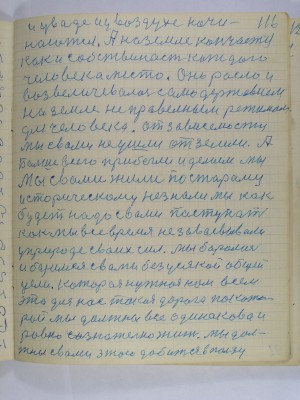 116
и уваде и у воздухе начи-
нается. А на земле кончается
как и собственность каждого
человека место. Оно росло и
возвеличевалось самодержавием
на земле не правельным режимом
для человека. От зависемости
мы свами не ушли от земли. А
больше всего прибегли и делаем мы
Мы свами жили по старому
историческому незнали мы как
будет надо свами поступать
как мы всё время незавоевывали
уприроде своих сил. Мы боролись
и боимся свами без усякой общей
цели. Которая нужная нам всем
это для нас такая дорога по кото-
рой мы должны все одинаково и
ровно сознательно жить. Мы дол-
жны свами этого добится в ползу